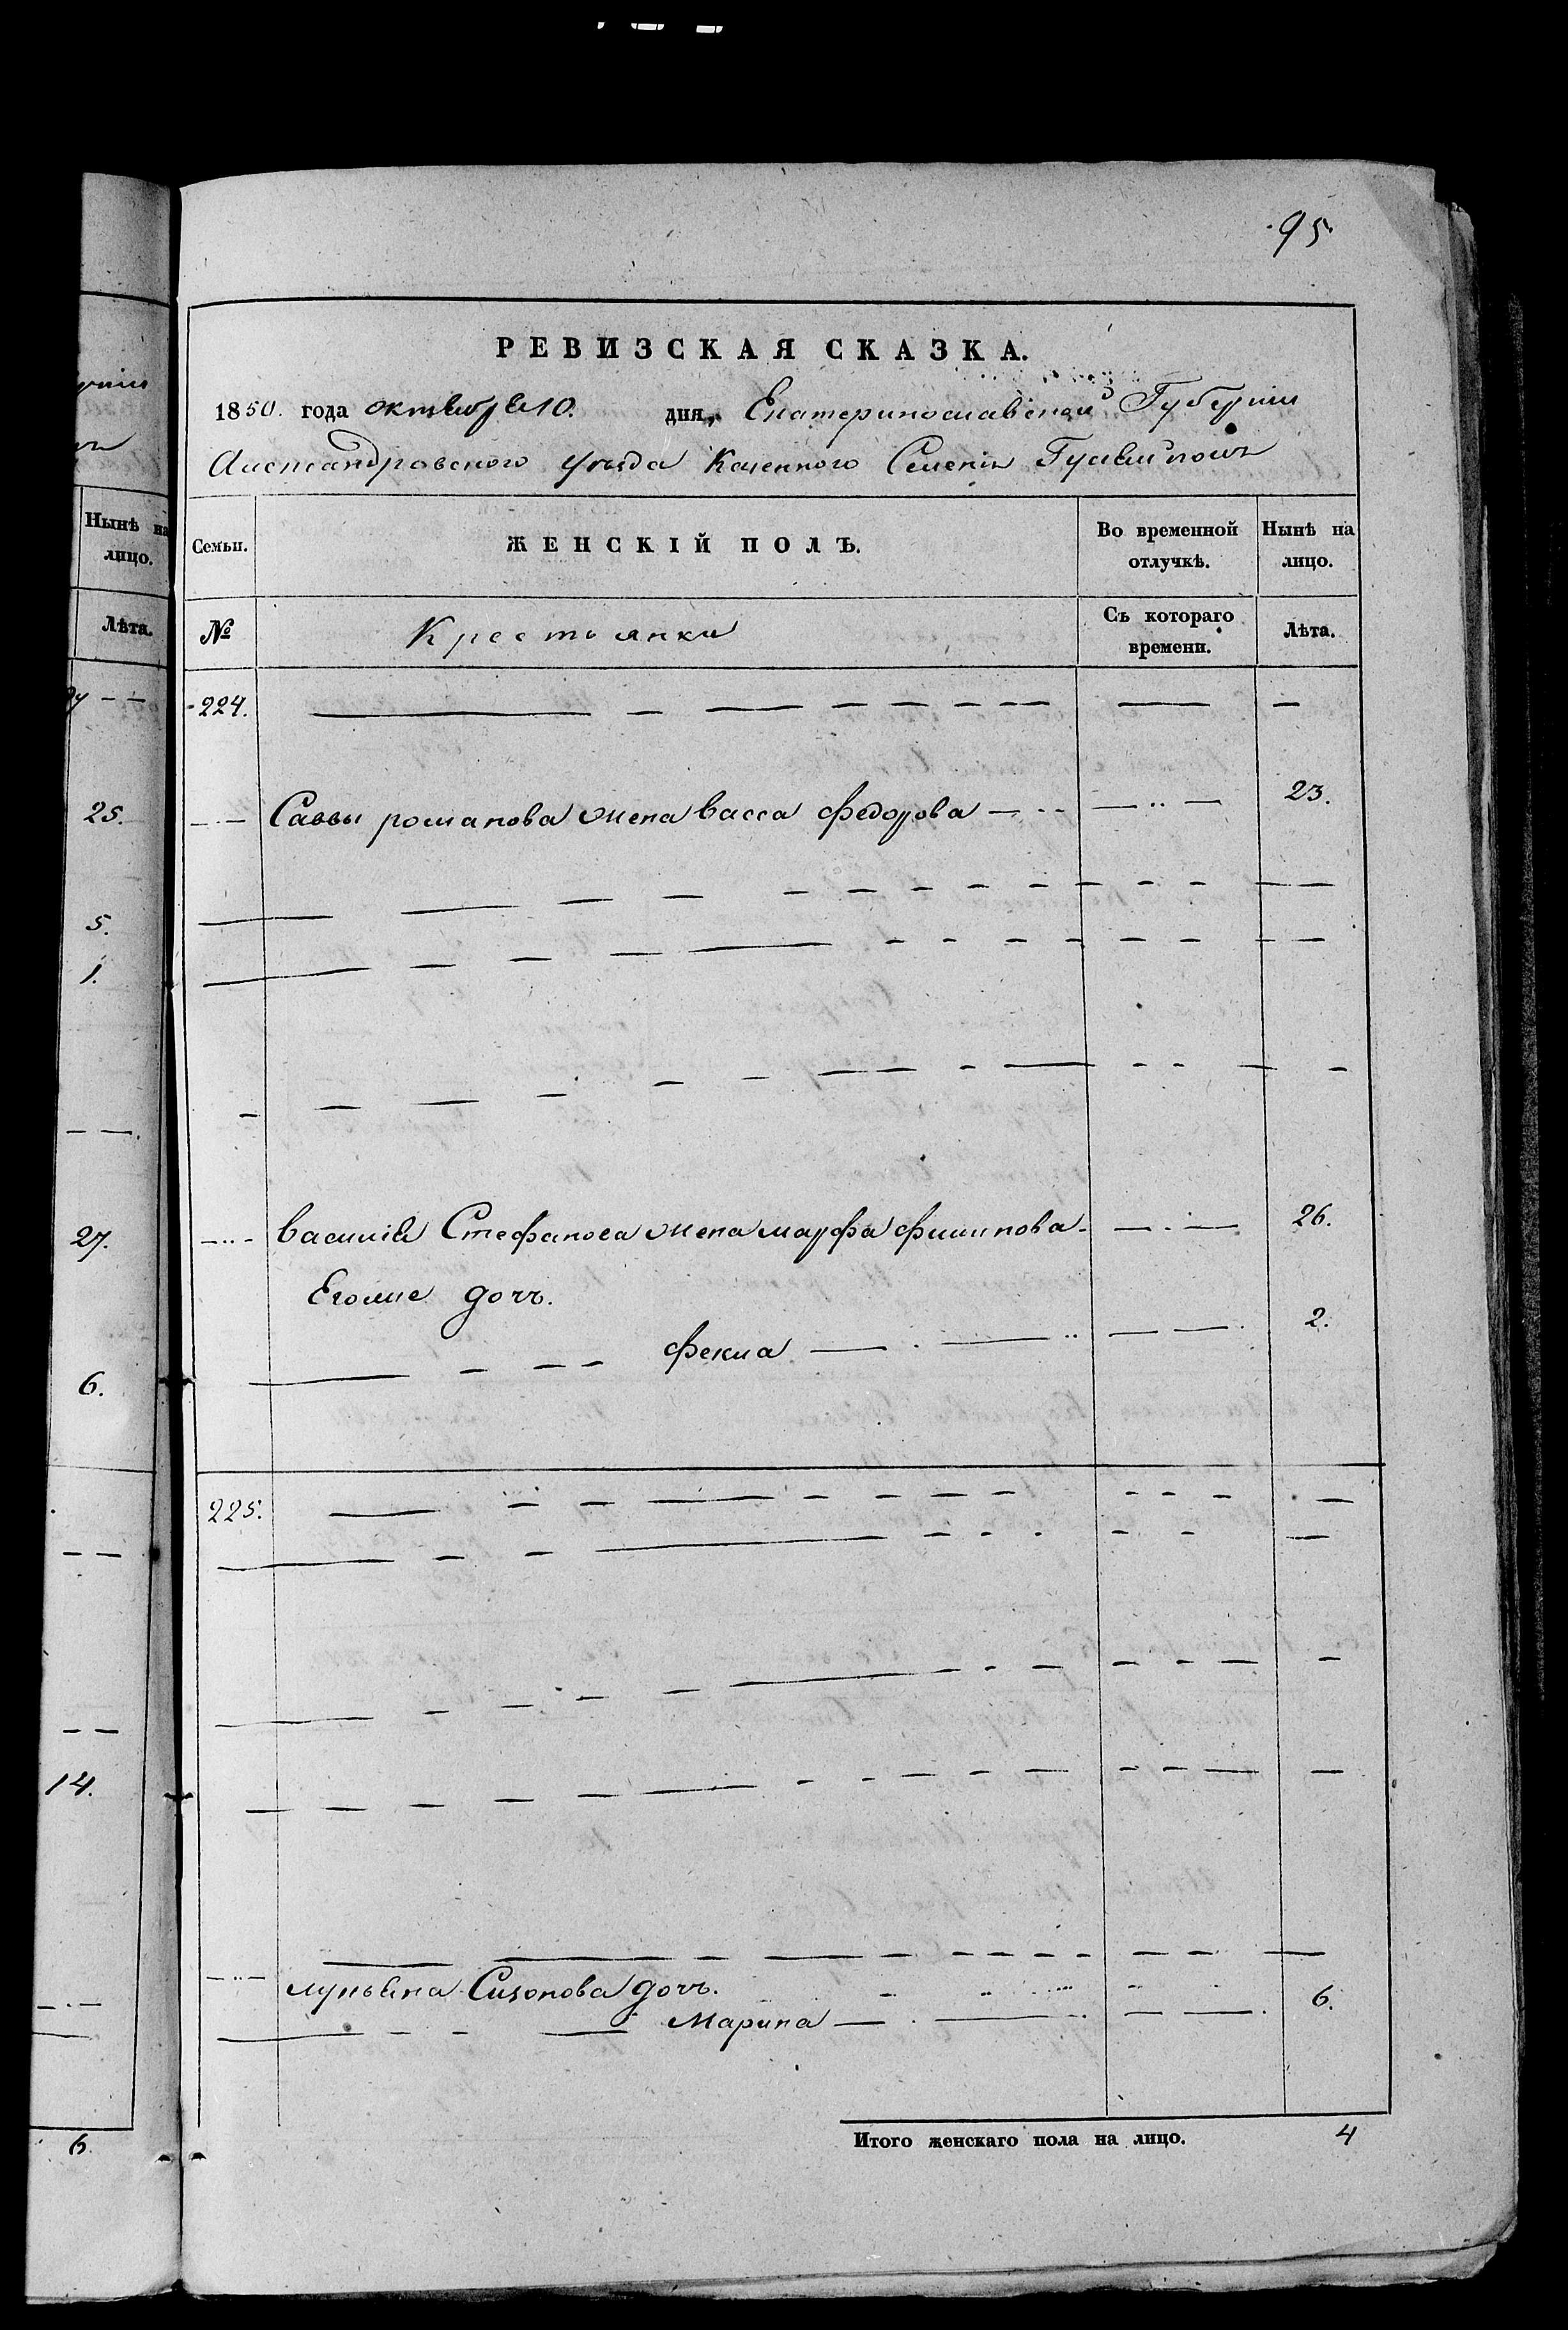 95
РЕВИЗСКАЯ СКАЗКА.
1850. года октября 10. дня, Екатеринославской Губернии
Александровского уезда Казенного Селения
Нынѣ на лицо.
Лѣта.
25.
5.
1.
27.
6.
14.
6
Семьи. ЖЕНСКІЙ ПОЛЪ. Во временной отлучкѣ. Нынѣ на лицо.
№ Крестьянки Съ котораго времени. Лѣта.
224.
Саввы романова жена васса федорова 23.
василия Стефанова жена марфа филипова 26.
Егоже дочь.
фекла 2.
225.
лукьяна Сизонова дочь.
Марина 6.
Итого женскаго пола на лицо. 4